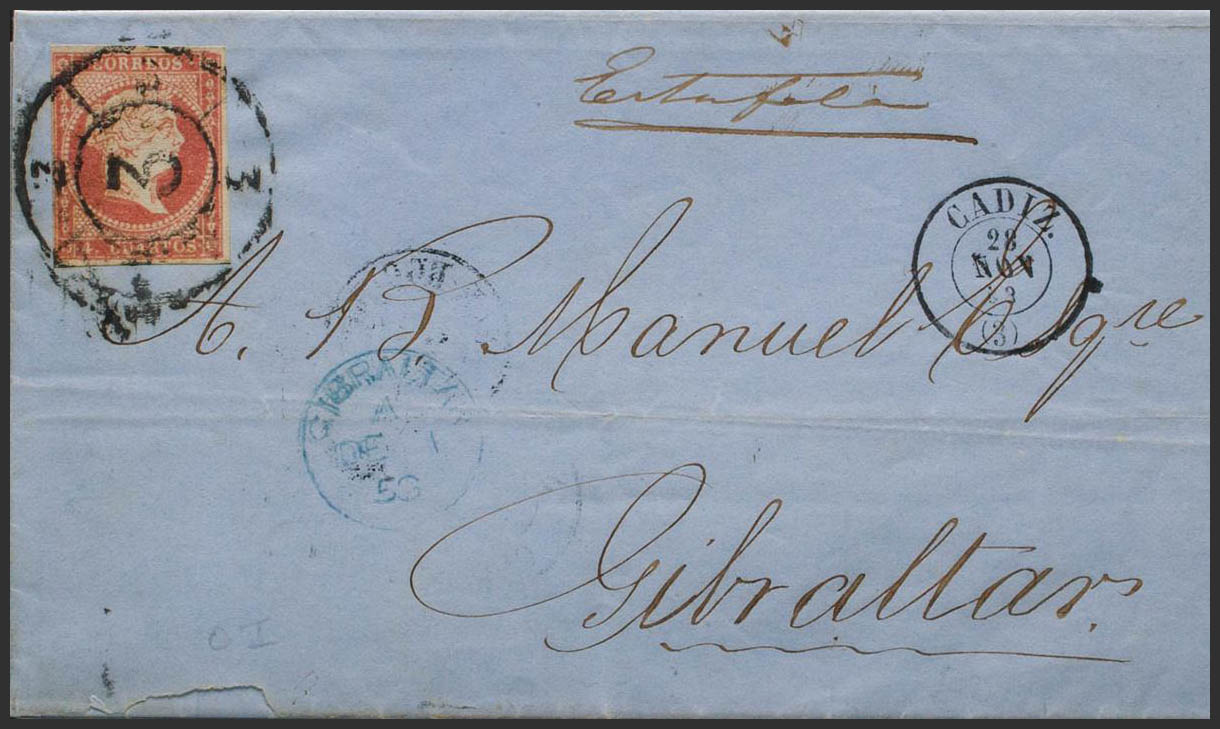 CORREOS
3
3
4. CUARTOS
Estafeta
CADIZ.
28
NOV
(3)
A. B. Manuel Esqre
GIBRALTA
A
DE 1
Gibraltar.